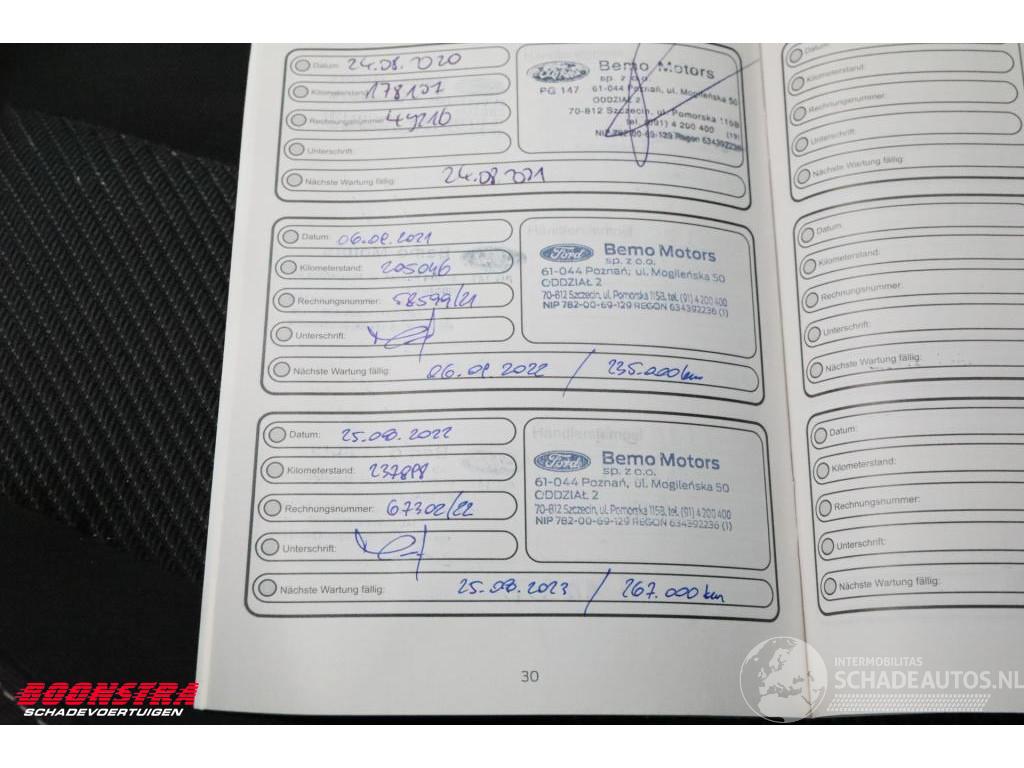 Datum: 24.08.2020
Kilometerstand: 178107
Rechnungsnummer: 49216
Unterschrift:
Nächste Wartung fällig: 24.08 2021
Ford Bemo Motors
sp. z o.o.
PG 147 61-044 Poznań, ul. Mogileńska 50
ODDZIAŁ 2
70-812 Szczecin, ul. Pomorska 115B
tel. (91) 4 200 400 (19)
NIP 782-00-69-129 Regon 634392236
Datum: 06.09.2021
Kilometerstand: 205046
Rechnungsnummer: 58599/21
Unterschrift:
Nächste Wartung fällig: 06.09.2022 / 235.000km
Händlerstempel
Ford Bemo Motors
sp. z o.o.
61-044 Poznań, ul. Mogileńska 50
ODDZIAŁ 2
70-812 Szczecin, ul. Pomorska 115B, tel. (91) 4 200 400
NIP 782-00-69-129 REGON 634392236 (1)
Datum: 25.08.2022
Kilometerstand: 237898
Rechnungsnummer: 67302/22
Unterschrift:
Nächste Wartung fällig: 25.08.2023 / 267.000km
Händlerstempel
Ford Bemo Motors
sp. z o.o.
61-044 Poznań, ul. Mogileńska 50
ODDZIAŁ 2
70-812 Szczecin, ul. Pomorska 115B, tel. (91) 4 200 400
NIP 782-00-69-129 REGON 634392236 (1)
30
Datum:
Kilometerstand:
Rechnungsnummer:
Unterschrift:
Nächste Wartung fällig:
Datum:
Kilometerstand:
Rechnungsnummer:
Unterschrift:
Nächste Wartung fällig:
Datum:
Kilometerstand:
Rechnungsnummer:
Unterschrift:
Nächste Wartung fällig:
BOONSTRA
SCHADEVOERTUIGEN
INTERMOBILITAS
SCHADEAUTOS.NL